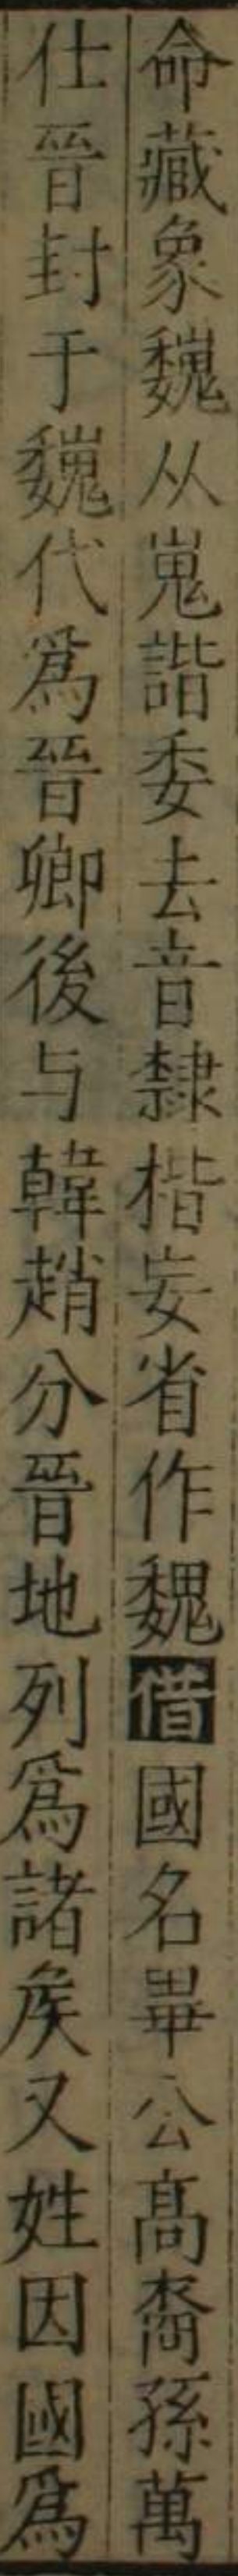 命藏象巍从嵬諧委去音隸楷妄省作魏借國名畢公高裔孫萬
仕晉封于巍代爲晉卿後与韓趙分晉地列爲諸矦又姓因國爲